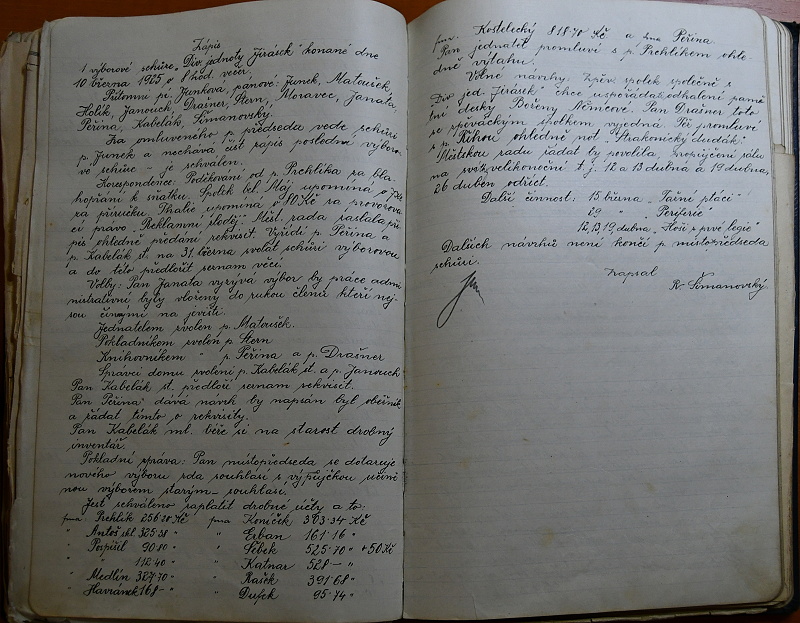 Zápis
1 výborové schůze "Div. jednoty Jirásek" konané dne
10 března 1925 o 8 hod. večer.
Přítomni pí. Junková, pánové: Junek, Matoušek,
Holík, Janouch, Drašner, Stern, Moravec, Janata,
Peřina, Kabelák, Šimanovský.
Za omluveného p. předseda vede schůzi
p. Junek a nechává čísti zápis poslední výboro-
vé schůze " je schválen.
Korespondence: Poděkování od p. Prchlíka za bla-
hopřání k sňatku. Spolek bel. Máj upomíná o
za příručku. upomíná o 80 Kč za provozova-
cí právo "Reklamní zloděj" Měst. rada zaslala pří-
pis ohledně předání rekvisit. Vyřídí p. Peřina a
p. Kabelák st. na 31. března svolat schůzi výborovou
a do této předložit seznam věcí.
Volby: Pan Janata vyzývá výbor by práce admi
nistrativní byly vloženy do rukou členů kteří nej-
sou činnými na jevišti.
Jednatelem zvolen p. Matoušek.
Pokladníkem zvolen p. Stern
Knihovníkem " p. Peřina a p. Drašner
Správci domu zvoleni p. Kabelák st. a p. Janouch
Pan Kabelák st. předloží seznam rekvisit.
Pan Peřina dává návrh by napsán byl oběžník
a žádat tímto o rekvisity.
Pan Kabelák ml. béře si na starost drobný
inventář.
Pokladní správa: Pan místopředseda se dotazuje
nového výboru zda souhlasí s výpůjčkou učině
nou výborem starým – souhlasí.
Jest schváleno zaplatit drobné účty a to:
fma Prchlík 256·20 Kč fma Koníček 303·34 Kč
" Antoš skl. 325·38 " " Erban 161·16 "
" Pospíšil 90·80 " " Šebek 525·70 " + 50 Kč
" " 112·40 " " Katnar 528 – "
" Medlín 327·70 " " Rašek 391·68 "
" Havránek 168 – " " Dušek 95·74 "
fma. Kostelecký 818·70 Kč a fma Peřina
Pan jednatel promluví s p. Prchlíkem ohle-
dně výtahu.
Volné návrhy. Zpěv. spolek společně s
Div. jed. Jirásek" chce uspořádat odhalení pamě-
tní desky Boženy Němcové. Pan Drašner toto
se zpěváckým spolkem vyjedná. Týž promluví
s p. Říhou ohledně not "Strakonický dudák"
Městskou radu žádat by povolila zapůjčení sálu
na svátky velikonoční t. j. 12 a 13 dubna a 19 dubna,
26 duben odříct.
Další činnost: 15 března "Tažní ptáci"
29 " "Periferie"
12, 13, 19, dubna, "Hoši z prvé legie"
Dalších návrhů není končí p. místopředseda
schůzi.
Zapsal
R. Šimanovský.